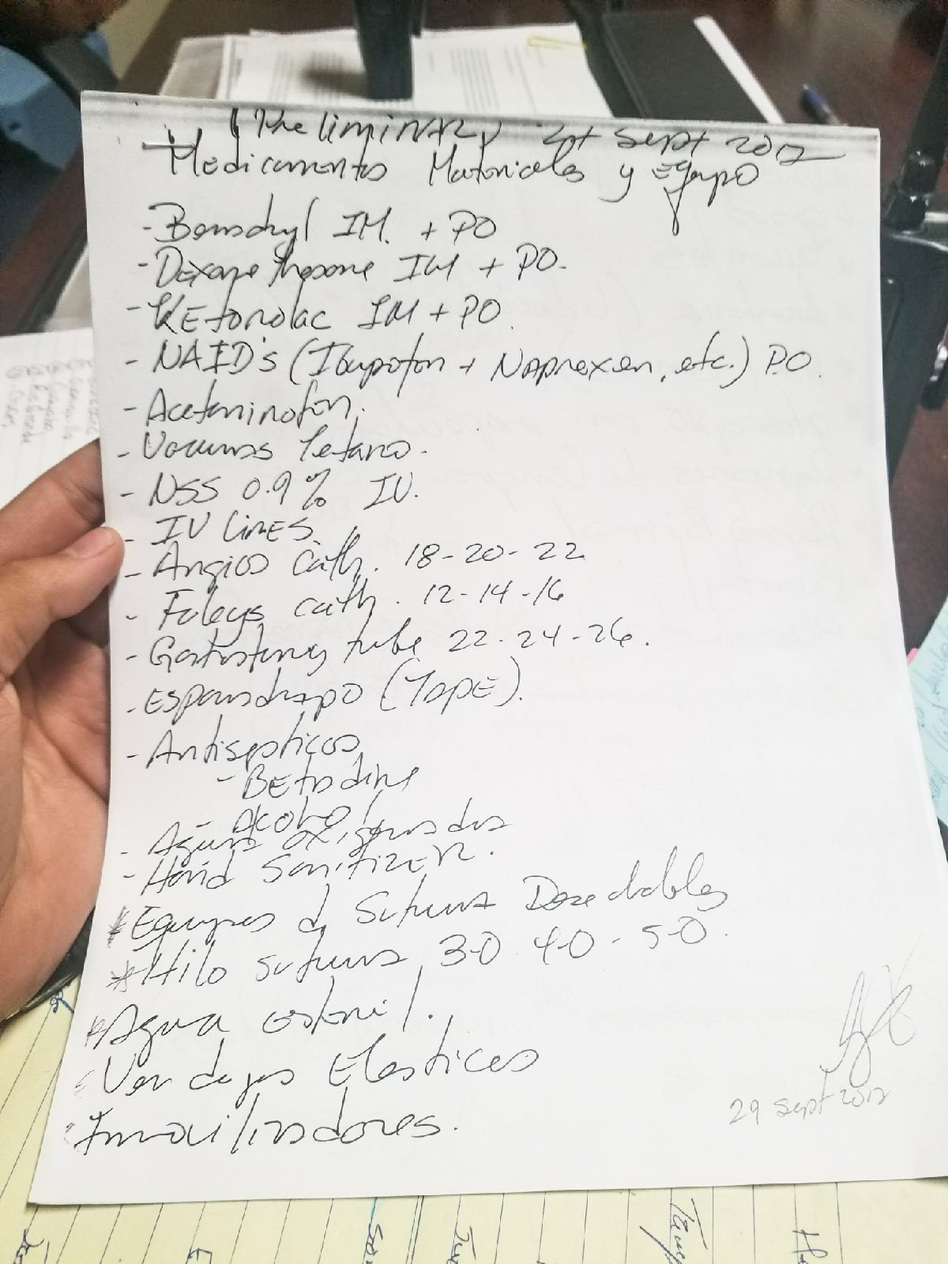 (Preliminary) Sept 2017
Medicamentos Materiales y Equipo
- Benadryl IM. + PO
- Dexamethasone IM + PO.
- KEtorolac IM + PO.
- NAID's (Ibuprofen + Naproxen, etc.) P.O.
- Acetaminofen.
- Vacunas Tetano.
- NSS 0.9% IV.
- IV LiNES.
- Angios Cath. 18-20-22
- Foleys cath. 12-14-16
- Gastrostomy tube 22-24-26.
- Esparadrapo (TAPE).
- Antisepticos
- BEtadine
- Alcohol
- Agua oxigenada
- Hand SanitizER.
* Equipos d Sutura Desechables
* Hilo sutura 3-0 4-0 - 5-0.
* Agua esteril.
Vendajes Elasticos
Inmovilizadores.
29 sept 2017